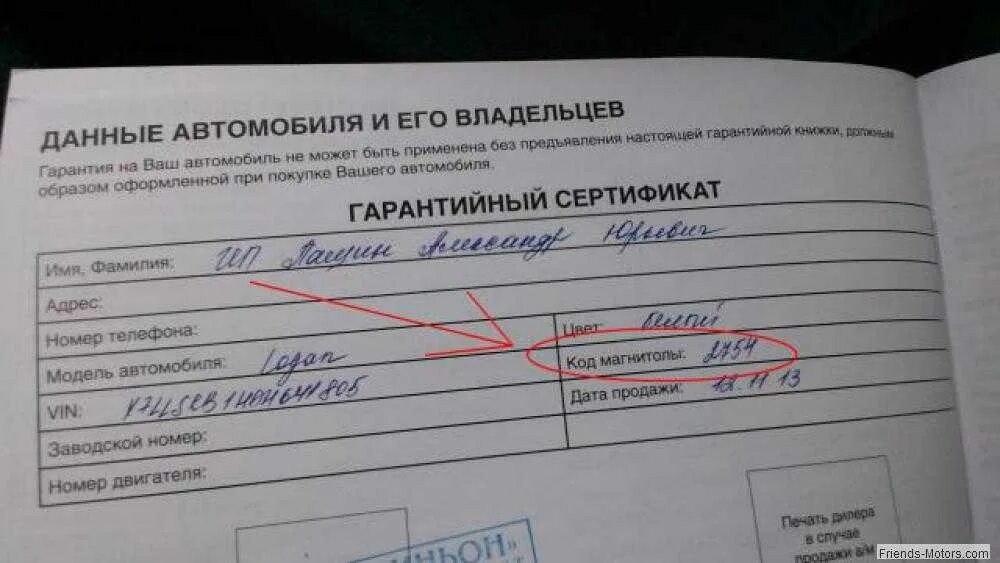 ДАННЫЕ АВТОМОБИЛЯ И ЕГО ВЛАДЕЛЬЦЕВ
Гарантия на Ваш автомобиль не может быть применена без предъявления настоящей гарантийной книжки, должным
образом оформленной при покупке Вашего автомобиля.
ГАРАНТИЙНЫЙ СЕРТИФИКАТ
Имя, Фамилия: ИП Александр Юрьевич
Адрес:
Номер телефона:
Цвет: белый
Модель автомобиля: Logan
Код магнитолы: 2754
VIN:
Дата продажи: 12.11 13
Заводской номер:
Номер двигателя:
Печать дилера
в случае
продажи а/м
Friends-Motors.com